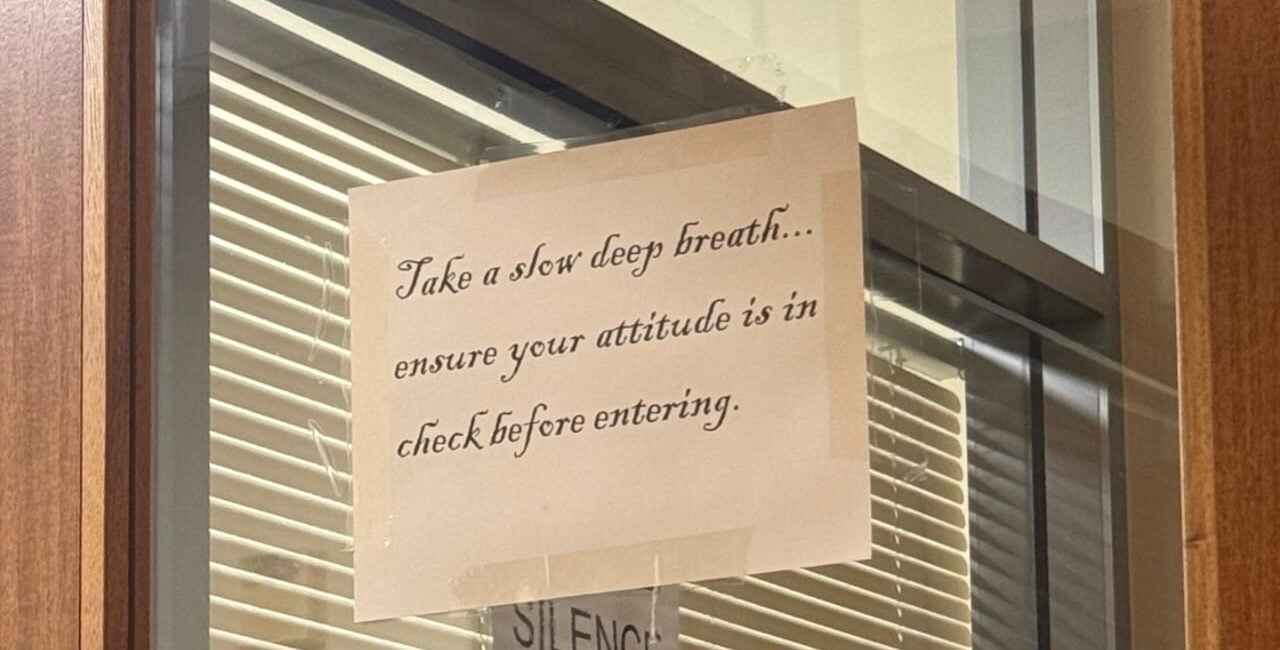 Take a slow deep breath...
ensure your attitude is in
check before entering.
SILENCE